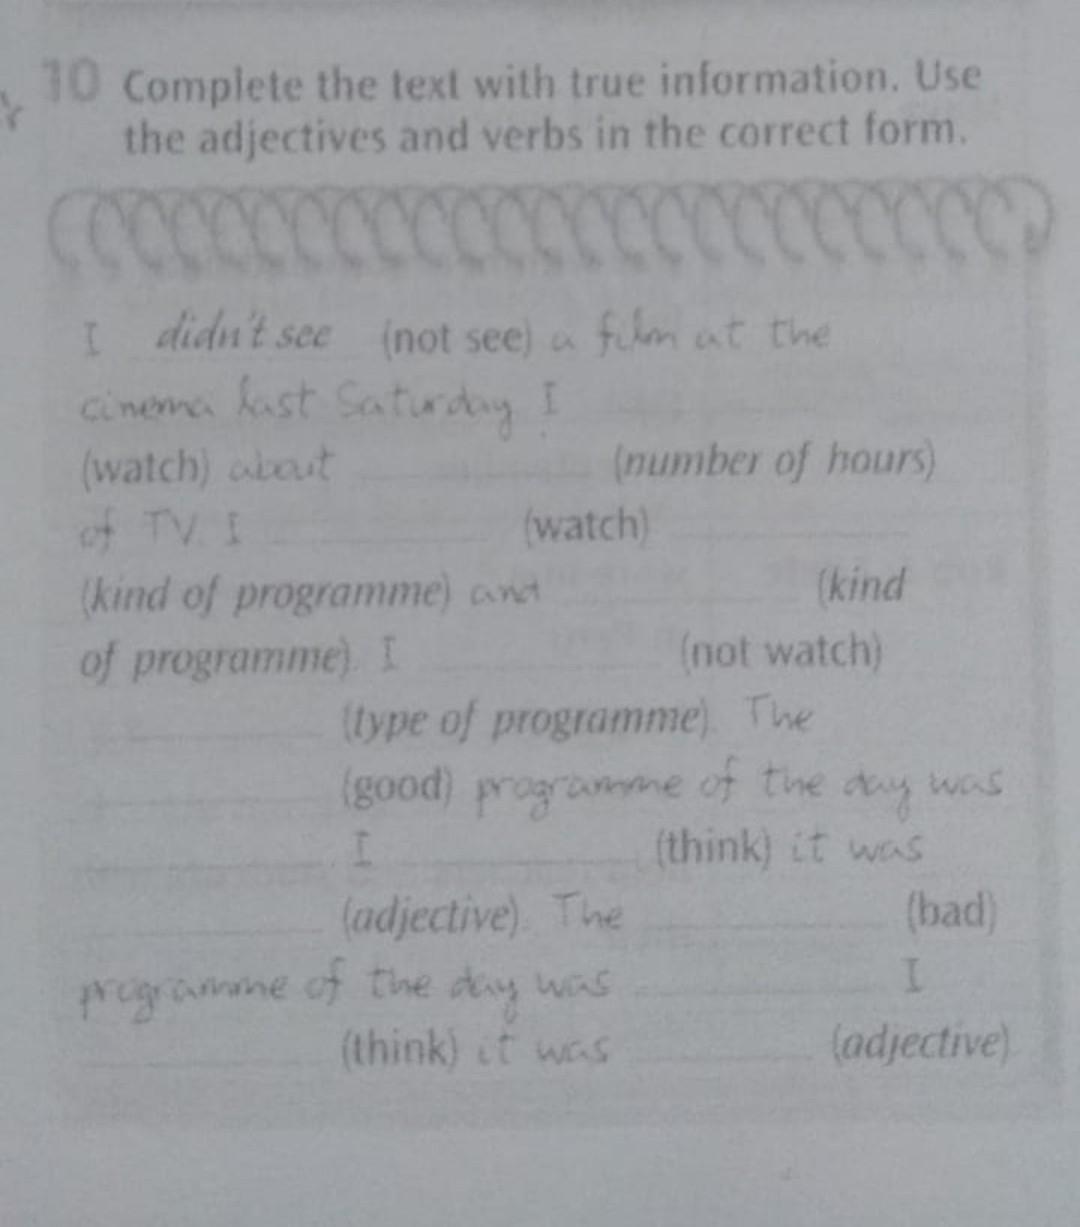 10 Complete the text with true information. Use
the adjectives and verbs in the correct form.
I didn't see (not see) a film at the
cinema last Saturday I
(watch) about (number of hours)
of TV. I (watch)
(kind of programme) and (kind
of programme). I (not watch)
(type of programme). The
(good) programme of the day was
I (think) it was
(adjective). The (bad)
programme of the day was I
(think) it was (adjective)